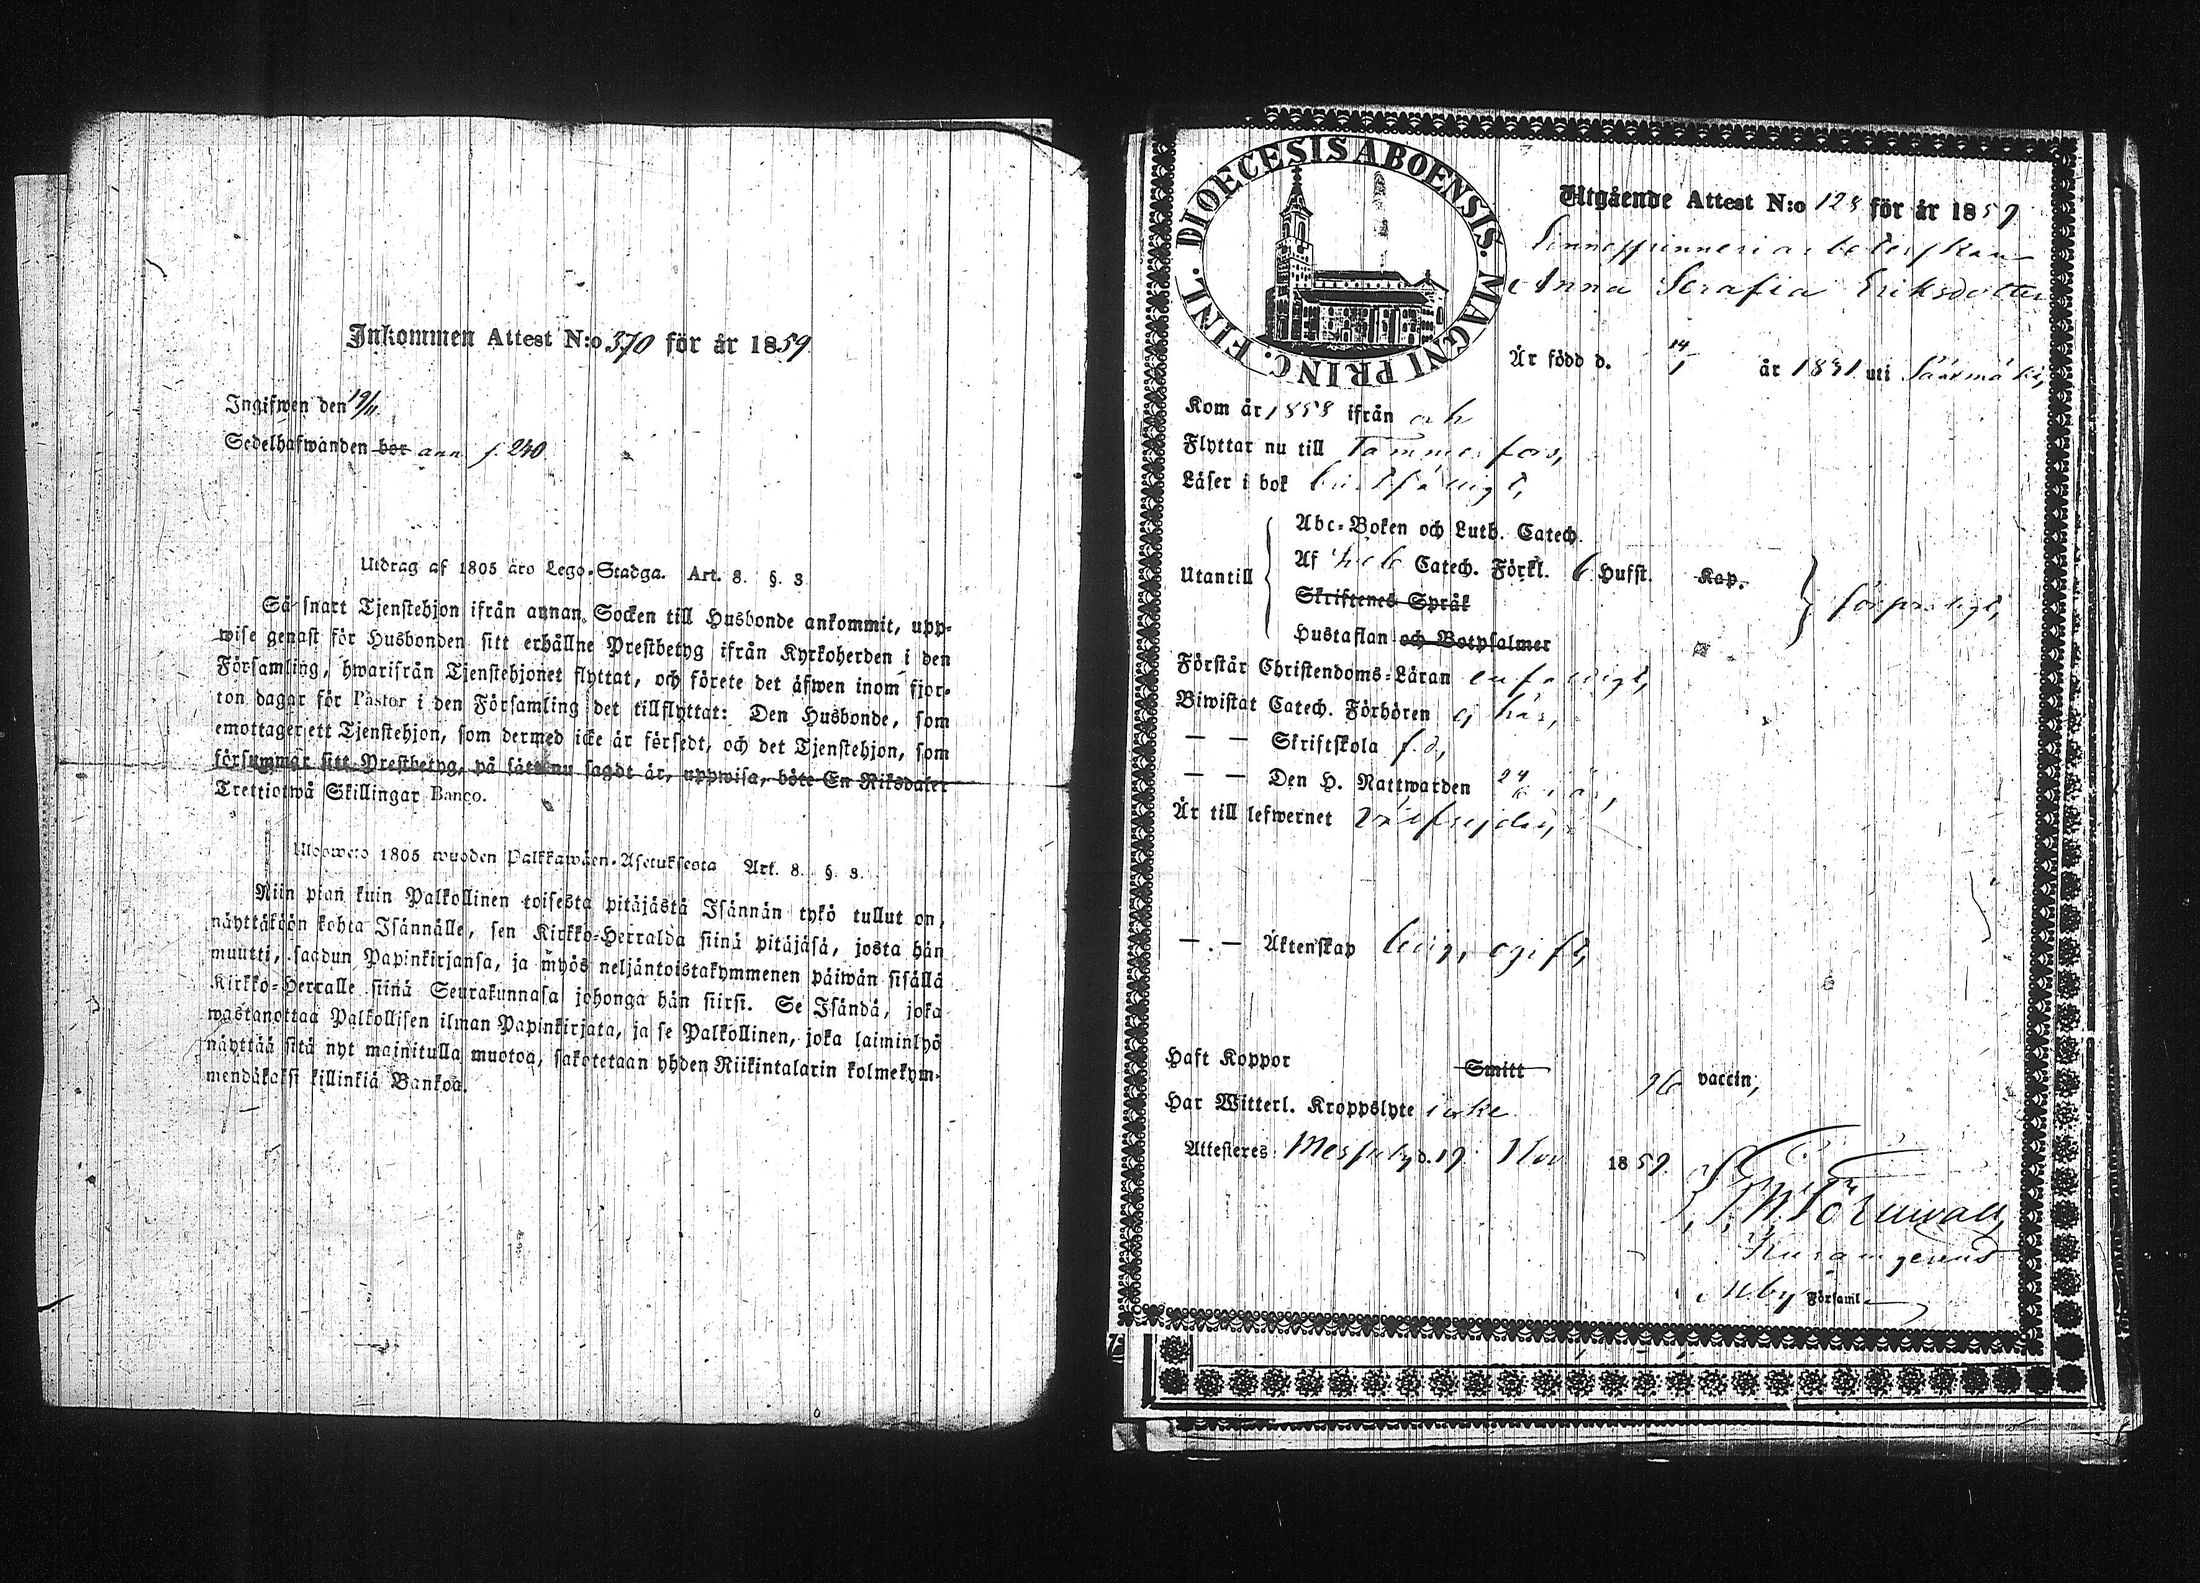 Inkommen Attest N:o 370 för år 1859
Ingifwen den 19/11
Sedelhafwanden bor ann p. 240
Utdrag af 1805 års Lego-Stadga. Art. 8. §. 3.
Så snart Tjenstehjon ifrån annan Socken till Husbonde ankommit, upp-
wise genast för Husbonden sitt erhållne Prestbetyg ifrån Kyrkoherden i den
Församling, hwarifrån Tjenstehjonet flyttat, och förete det äfwen inom fjor-
ton dagar för Pastor i den Församling det tillflyttat: Den Husbonde, som
emottager ett Tjenstehjon, som dermed icke är försedt, och det Tjenstehjon, som
försummar sitt Prestbetyg, på sätt nu sagdt är, uppwisa, böte En Riksdaler
Trettiotwå Skillingar Banco.
Uloswето 1805 wuoden Palkkawäen-Asetuksesta Art. 8. §. 3.
Niin pian kuin Palkollinen toisesta pitäjästä Isännän tykö tullut on,
näyttäköön kohta Isännälle, sen Kirkko-Herralda siinä pitäjäsä, josta hän
muutti, saadun Papinkirjansa, ja myös neljäntoistakymmenen päiwän sisällä
Kirkko-Herralle siinä Seurakunnasa johonga hän siirsi. Se Isändä, joka
wastanottaa Palkollisen ilman Papinkirjata, ja se Palkollinen, joka laiminlyö
näyttää sitä nyt mainitulla muotoa, sakotetaan yhden Riikintalarin kolmekym-
mendäkaksi killinkiä Bankoa.
DIOECESIS ABOENSIS. MAGNI PRINC. FINL.
Utgående Attest N:o 128 för år 1859
Linnespinneriarbeterskan
Anna Serafia Eriksdotter
Är född d. 14/1 år 1841 uti Sääxmäki,
Kom år 1858 ifrån
Flyttar nu till Tammerfors,
Läser i bok bristfälligt,
Abc-Boken och Luth. Catech.
Utantill Af Catech. Förkl. 6 Hufst. Kap.
Skriftenes Språk försvarligt,
Hustaflan och Botpsalmer
Förstår Christendoms-Läran enfaldigt,
Biwistat Catech. Förhören ej här,
— — Skriftskola f. d,
— — Den H. Nattwarden 24/6 i år,
Är till lefwernet Välfrejdad,
— . — Äktenskap ledig, ogift,
Haft Koppor Smitt vaccin,
Har Witterl. Kroppslyte icke
Attesteres Messuby d. 19 Nov 1859.
Törnwall
Församl.